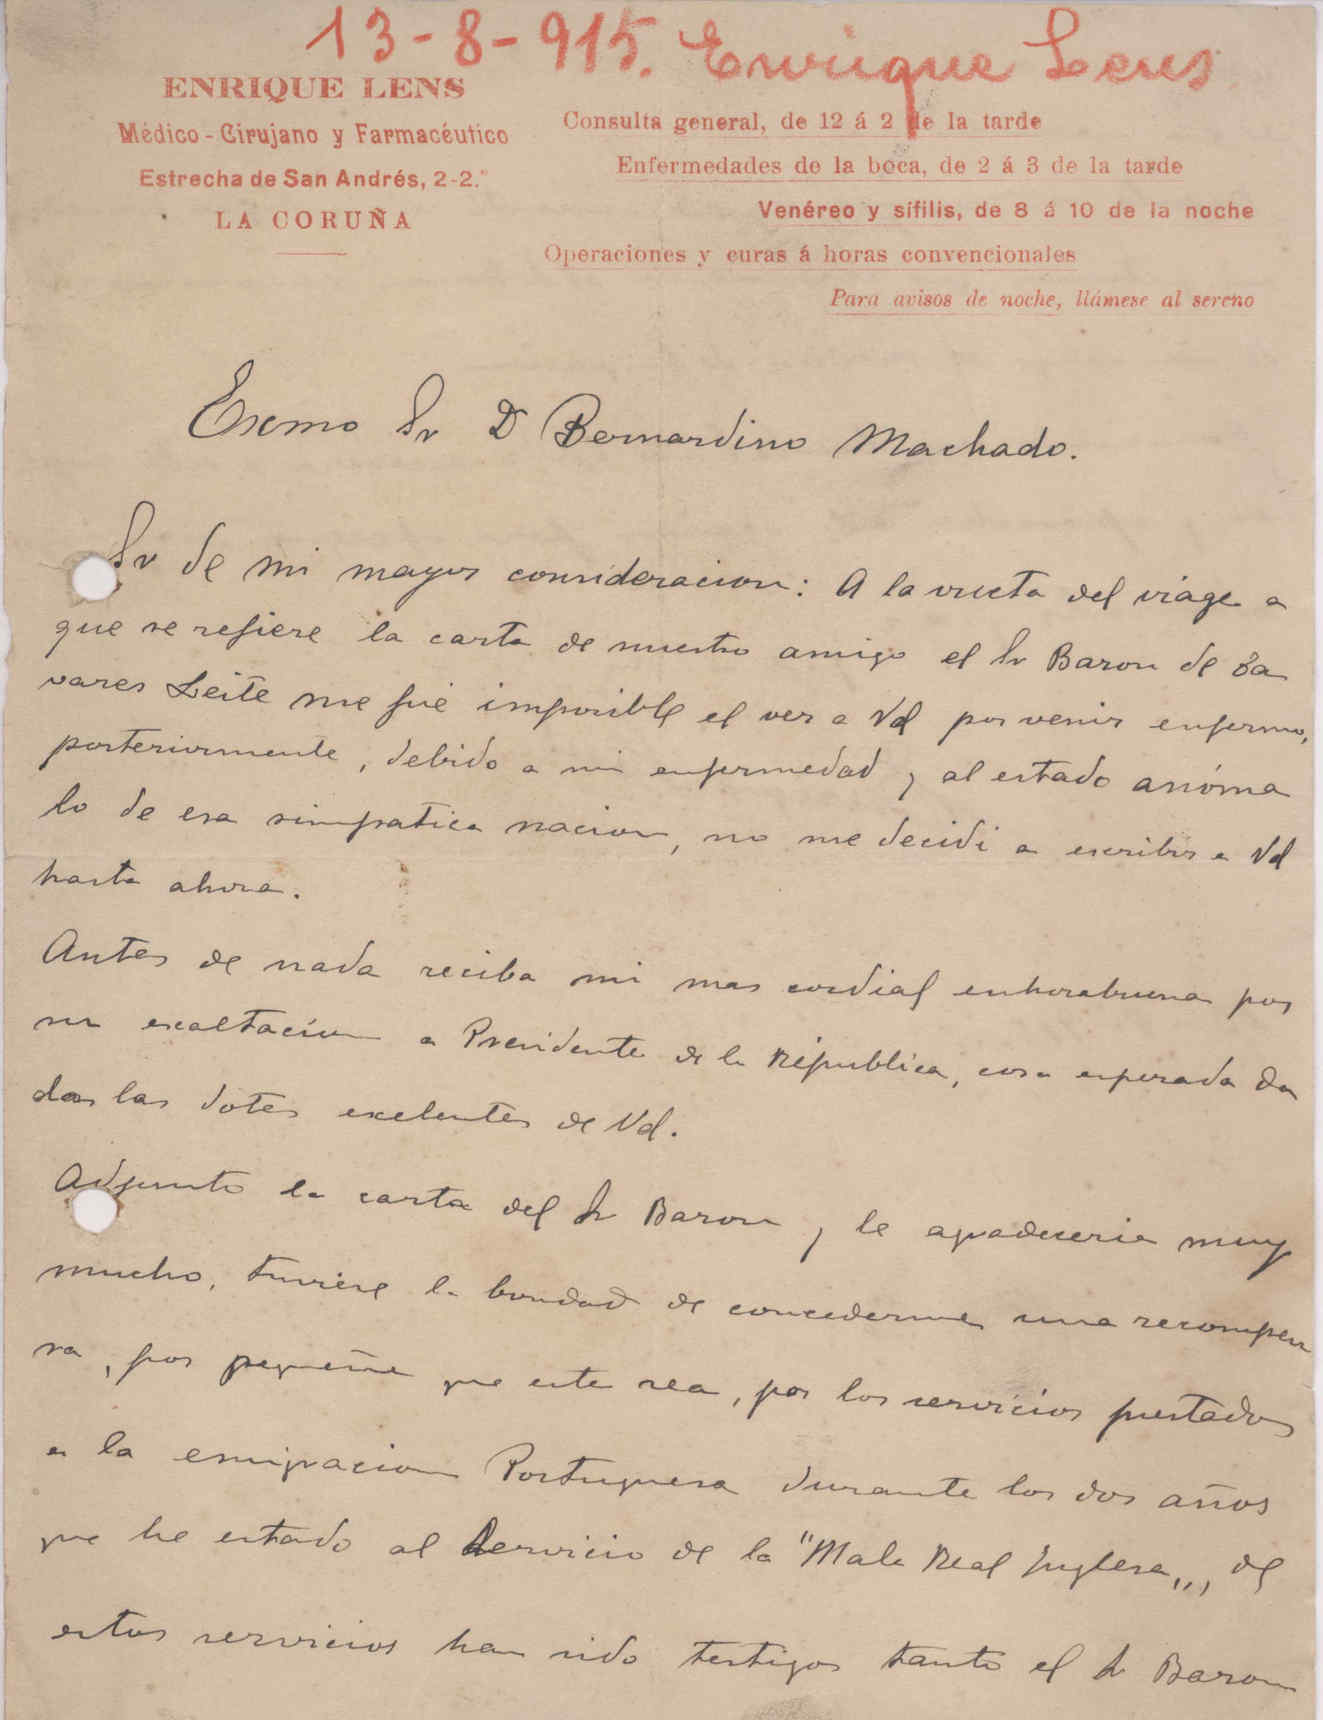 13-8-915. Enrique Lens
ENRIQUE LENS
Médico-Cirujano y Farmacéutico
Estrecha de San Andrés, 2-2.°
LA CORUÑA
Consulta general, de 12 á 2 de la tarde
Enfermedades de la boca, de 2 á 3 de la tarde
Venéreo y sífilis, de 8 á 10 de la noche
Operaciones y curas á horas convencionales
Para avisos de noche, llámese al sereno
Excmo Sr D Bernardino Machado.
Sr de mi mayor consideracion: A la vuelta del viage a
que se refiere la carta de nuestro amigo el Sr Baron de Ta
vares Leite me fué imposible el ver a Vd por venir enfermo,
posteriormente, debido a mi enfermedad y al estado anóma
lo de esa simpatica nacion, no me decidi a escribir a Vd
hasta ahora.
Antes de nada reciba mi mas cordial enhorabuena por
su exaltacion a Presidente de la Républica, cosa esperada da
das las dotes exelentes de Vd.
Adjunto la carta del Sr Baron y le agradeceria muy
mucho, tuviese la bondad de concederme una recompen
sa, por pequeña que esta sea, por los servicios prestados
a la emigracion Portuguesa durante los dos años
que he estado al Servicio de la "Mala Real Inglesa,,, de
estos servicios han sido testigos tanto el Sr Baron